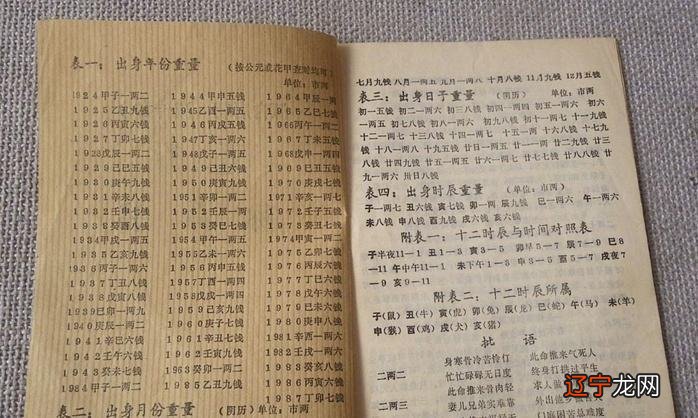 表一：出身年份重量
（按公元或花甲查时均可）
单位：市两
1924甲子一两二 1944甲申五钱 1964甲辰一两
1925乙丑九钱 1945乙酉一两五 1965乙巳七钱
1926丙寅六钱 1946丙戌五钱 1966丙午一两二
1927丁卯七钱 1947丁亥一两六 1967丁未五钱
1928戊辰一两二 1948戊子一两五 1968戊申一两四
1929己巳五钱 1949己丑六钱 1969己酉五钱
1930庚午九钱 1950庚寅九钱 1970庚戌七钱
1931辛未八钱 1951辛卯一两二 1971辛亥一两七
1932壬申七钱 1952壬辰一两 1972壬子五钱
1933癸酉八钱 1953癸巳七钱 1973癸丑七钱
1934甲戌一两五 1954甲午一两五 1974甲寅一两二
1935乙亥九钱 1955乙未一两六 1975乙卯七钱
1936丙子一两六 1956丙申五钱 1976丙辰六钱
1937丁丑八钱 1957丁酉一两四 1977丁巳六钱
1938戊寅八钱 1958戊戌一两四 1978戊午六钱
1939己卯一两九 1959己亥九钱 1979己未六钱
1940庚辰一两二 1960庚子七钱 1980庚申八钱
1941辛巳六钱 1961辛丑七钱 1981辛酉一两六
1942壬午六钱 1962壬寅九钱 1982壬戌一两
1943癸未七钱 1963癸卯一两二 1986丙寅六钱
1984甲子一两二 1985乙丑九钱 1987丁卯七钱
表二：出身月份重量 （阴历）单位：市两
七月九钱 八月一两五 九月一两八 十月八钱 十1月九钱 12月五钱
表三：出身日子重量 （阴历） 单位：市两
初一五钱 初二一两六 初三八钱 初四一两五 初五一两六 初六
一两五 初七八钱 初八一两六 初九八钱 初十一两六 十一九钱
十二一两七 十三八钱 十四一两七 十五一两 十六八钱 十七
九钱 十八一两八 十九五钱 廿日一两五 廿一一两 廿二九钱 廿三
八钱 廿四九钱 廿五一两五 廿六一两八 廿七七钱 廿八八钱 廿
九一两六 卅日八钱
表四：出身时辰重量 （单位：市两）
子一两六 丑六钱 寅七钱 卯一两 辰九钱 巳一两六 午一两六
未八钱 申八钱 酉九钱 戌六钱 亥六钱
附表一：十二时辰与时间对照表
子半夜11—1 丑1—3 寅3—5 卯早5—7 辰7—9 巳9
—11 午中午11—1 未下午1—3 申3—5 酉5—7 戌夜7
—9 亥9—11
附表二：十二时辰所属
子（鼠）丑（牛）寅（虎）卯（兔）辰（龙）巳（蛇）午（马）未（羊）
申（猴）酉（鸡）戌（犬）亥（猪）
批 语
身寒骨冷苦怜仃 此命推来气死人
二两二 忙忙碌碌无日度 终身打拱过平生
此命推来骨肉轻 求人
二两三 妻儿兄弟实难靠 外出
辽宁龙网